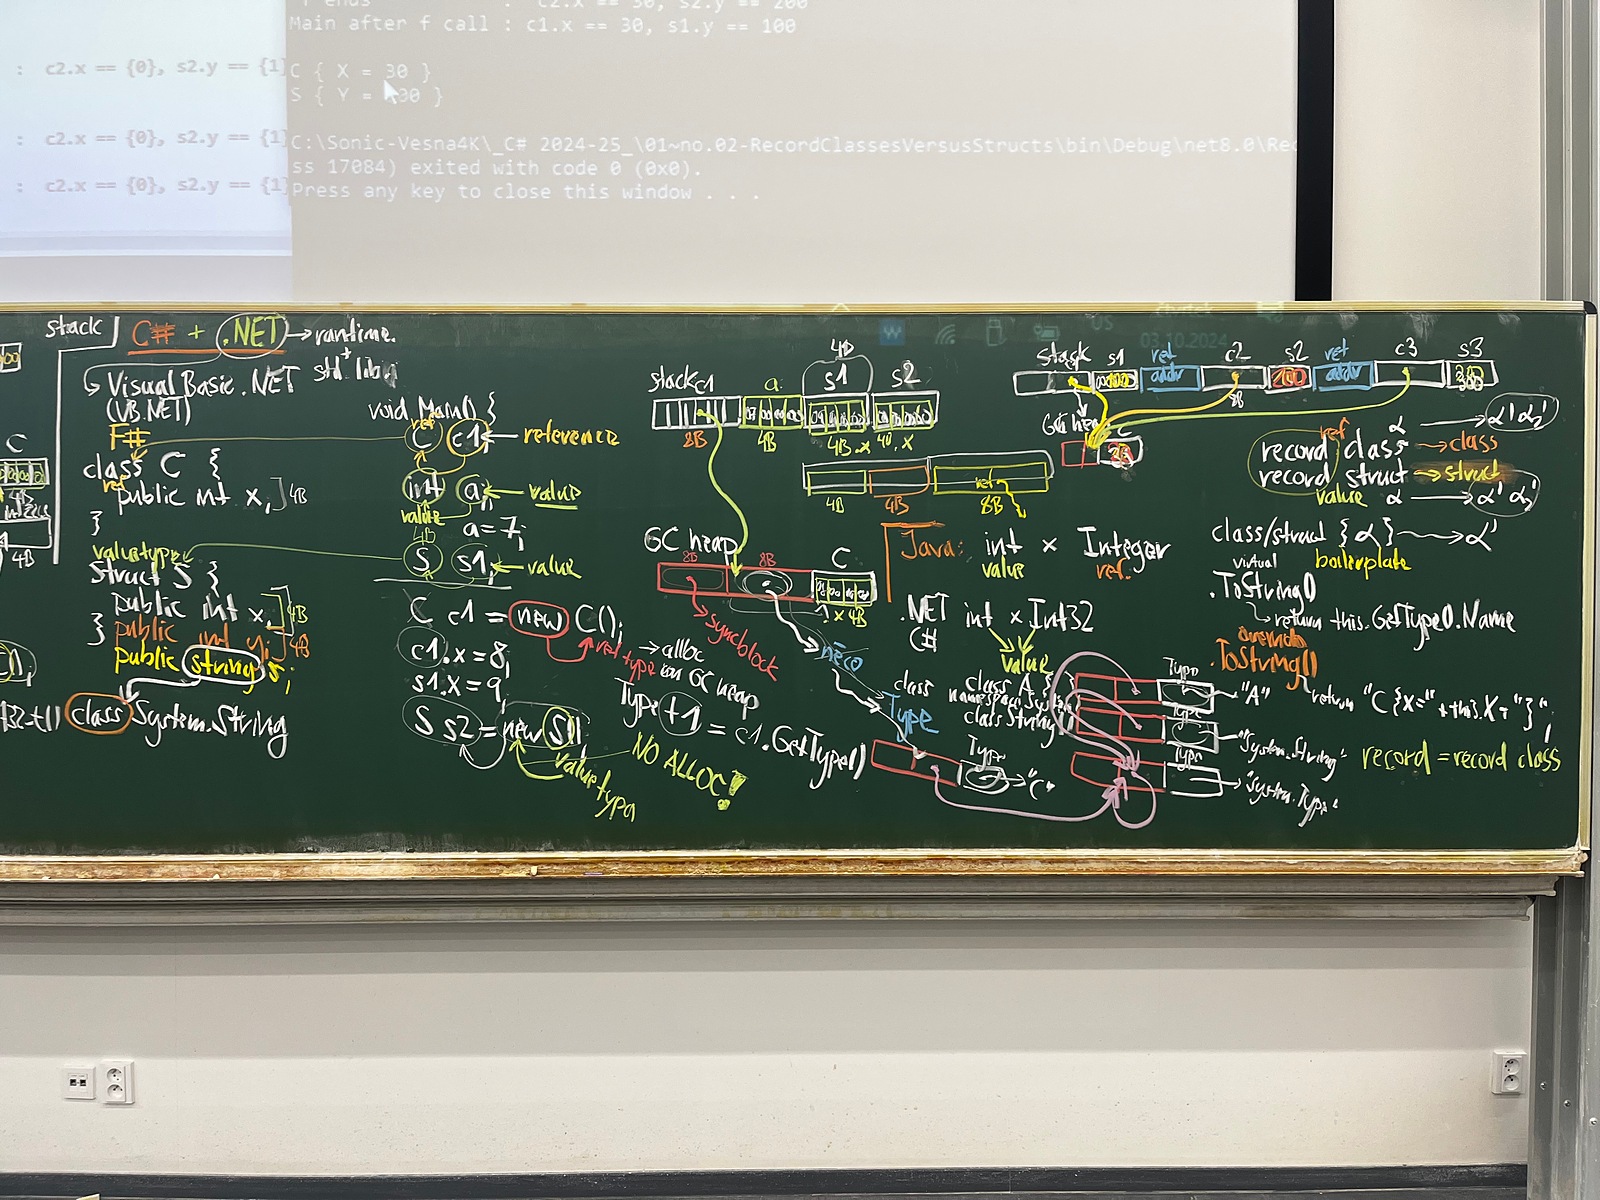 : c2.x == {0}, s2.y == {1}
: c2.x == {0}, s2.y == {1}
: c2.x == {0}, s2.y == {1}
f ends : c2.x == 30, s2.y == 200
Main after f call : c1.x == 30, s1.y == 100
C { X = 30 }
S { Y = 100 }
C:\Sonic-Vesna4K\_C# 2024-25_\01~no.02-RecordClassesVersusStructs\bin\Debug\net8.0\Rec
ss 17084) exited with code 0 (0x0).
Press any key to close this window . . .
03.10.2024
stack
C
4B
4B
C# + .NET → runtime.
+
std lib
Visual Basic .NET
(VB.NET)
F#
class C {
ref
public int x; 4B
}
valuetype
struct S {
public int x; 4B
public int y; 4B
}
public string s;
class System.String
void Main() {
ref
C c1 ← reference
int a; ← value
value
4B
a = 7;
S s1; ← value
C c1 = new C();
ref type → alloc
on GC heap
c1.x = 8;
s1.x = 9;
S s2 = new S()
valuetype
NO ALLOC!
Type t1 = c1.GetType()
stack c1 a s1 s2
4B
8B 4B 4B .x 4B .x
4B 4B ref 8B
GC heap
8B 8B C
x 4B
syncblock
něco
class
Type
Type
→ "C"
Java: int x Integer
value ref.
.NET int x Int32
C#
value
class A {
namespace System
class String {
Type → "A"
Type → "System.String"
Type → "System.Type"
stack s1 ret addr c2 s2 ret addr c3 s3
200
8B
GC heap C
ref α → α' α3'
record class → class
record struct → struct
value α → α' α3'
class/struct { α } → α'
virtual boilerplate
.ToString()
return this.GetType().Name
override
.ToString()
return "C {X=" + this.X + "}";
record = record class